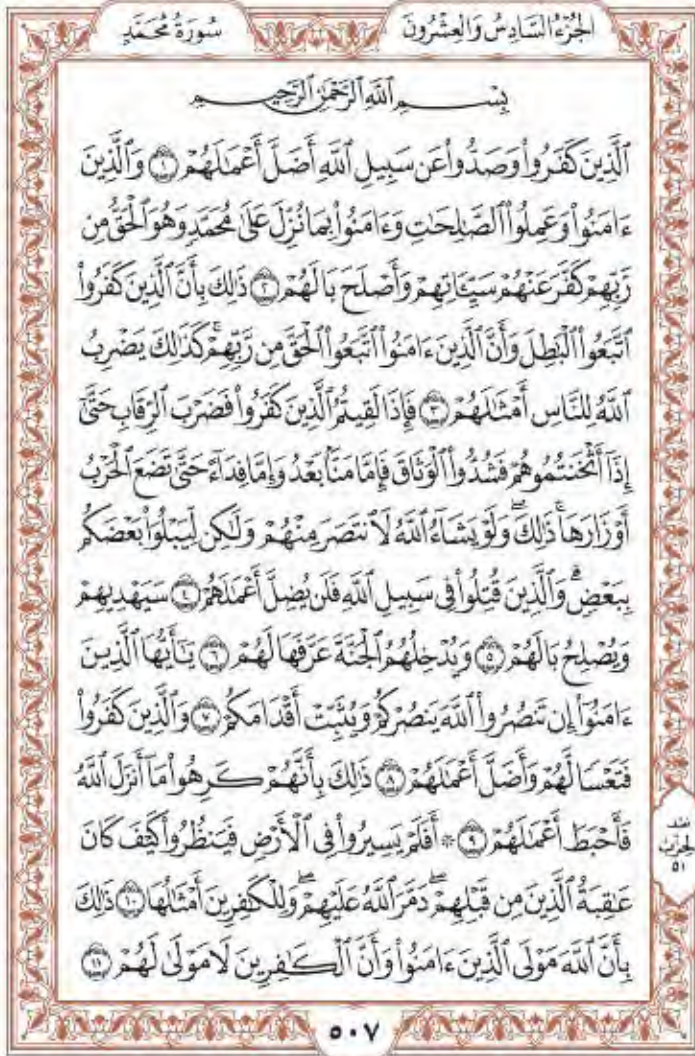 سُورَةُ مُحَمَّدٍ
الجُزْءُ السَّادِسُ وَالعِشْرُونَ
بِسْمِ ٱللَّهِ ٱلرَّحْمَٰنِ ٱلرَّحِيمِ
ٱلَّذِينَ كَفَرُواْ وَصَدُّواْ عَن سَبِيلِ ٱللَّهِ أَضَلَّ أَعْمَٰلَهُمْ ١ وَٱلَّذِينَ
ءَامَنُواْ وَعَمِلُواْ ٱلصَّٰلِحَٰتِ وَءَامَنُواْ بِمَا نُزِّلَ عَلَىٰ مُحَمَّدٍ وَهُوَ ٱلْحَقُّ مِن
رَّبِّهِمْ كَفَّرَ عَنْهُمْ سَيِّـَٔاتِهِمْ وَأَصْلَحَ بَالَهُمْ ٢ ذَٰلِكَ بِأَنَّ ٱلَّذِينَ كَفَرُواْ
ٱتَّبَعُواْ ٱلْبَٰطِلَ وَأَنَّ ٱلَّذِينَ ءَامَنُواْ ٱتَّبَعُواْ ٱلْحَقَّ مِن رَّبِّهِمْۚ كَذَٰلِكَ يَضْرِبُ
ٱللَّهُ لِلنَّاسِ أَمْثَٰلَهُمْ ٣ فَإِذَا لَقِيتُمُ ٱلَّذِينَ كَفَرُواْ فَضَرْبَ ٱلرِّقَابِ حَتَّىٰٓ
إِذَآ أَثْخَنتُمُوهُمْ فَشُدُّواْ ٱلْوَثَاقَ فَإِمَّا مَنَّۢا بَعْدُ وَإِمَّا فِدَآءً حَتَّىٰ تَضَعَ ٱلْحَرْبُ
أَوْزَارَهَاۚ ذَٰلِكَۖ وَلَوْ يَشَآءُ ٱللَّهُ لَٱنتَصَرَ مِنْهُمْ وَلَٰكِن لِّيَبْلُوَاْ بَعْضَكُم
بِبَعْضٍۗ وَٱلَّذِينَ قُتِلُواْ فِى سَبِيلِ ٱللَّهِ فَلَن يُضِلَّ أَعْمَٰلَهُمْ ٤ سَيَهْدِيهِمْ
وَيُصْلِحُ بَالَهُمْ ٥ وَيُدْخِلُهُمُ ٱلْجَنَّةَ عَرَّفَهَا لَهُمْ ٦ يَٰٓأَيُّهَا ٱلَّذِينَ
ءَامَنُوٓاْ إِن تَنصُرُواْ ٱللَّهَ يَنصُرْكُمْ وَيُثَبِّتْ أَقْدَامَكُمْ ٧ وَٱلَّذِينَ كَفَرُواْ
فَتَعْسًا لَّهُمْ وَأَضَلَّ أَعْمَٰلَهُمْ ٨ ذَٰلِكَ بِأَنَّهُمْ كَرِهُواْ مَآ أَنزَلَ ٱللَّهُ
فَأَحْبَطَ أَعْمَٰلَهُمْ ٩ ۞ أَفَلَمْ يَسِيرُواْ فِى ٱلْأَرْضِ فَيَنظُرُواْ كَيْفَ كَانَ
عَٰقِبَةُ ٱلَّذِينَ مِن قَبْلِهِمْۖ دَمَّرَ ٱللَّهُ عَلَيْهِمْۖ وَلِلْكَٰفِرِينَ أَمْثَٰلُهَا ١٠ ذَٰلِكَ
بِأَنَّ ٱللَّهَ مَوْلَى ٱلَّذِينَ ءَامَنُواْ وَأَنَّ ٱلْكَٰفِرِينَ لَا مَوْلَىٰ لَهُمْ ١١
الحزب
٥١
٥٠٧